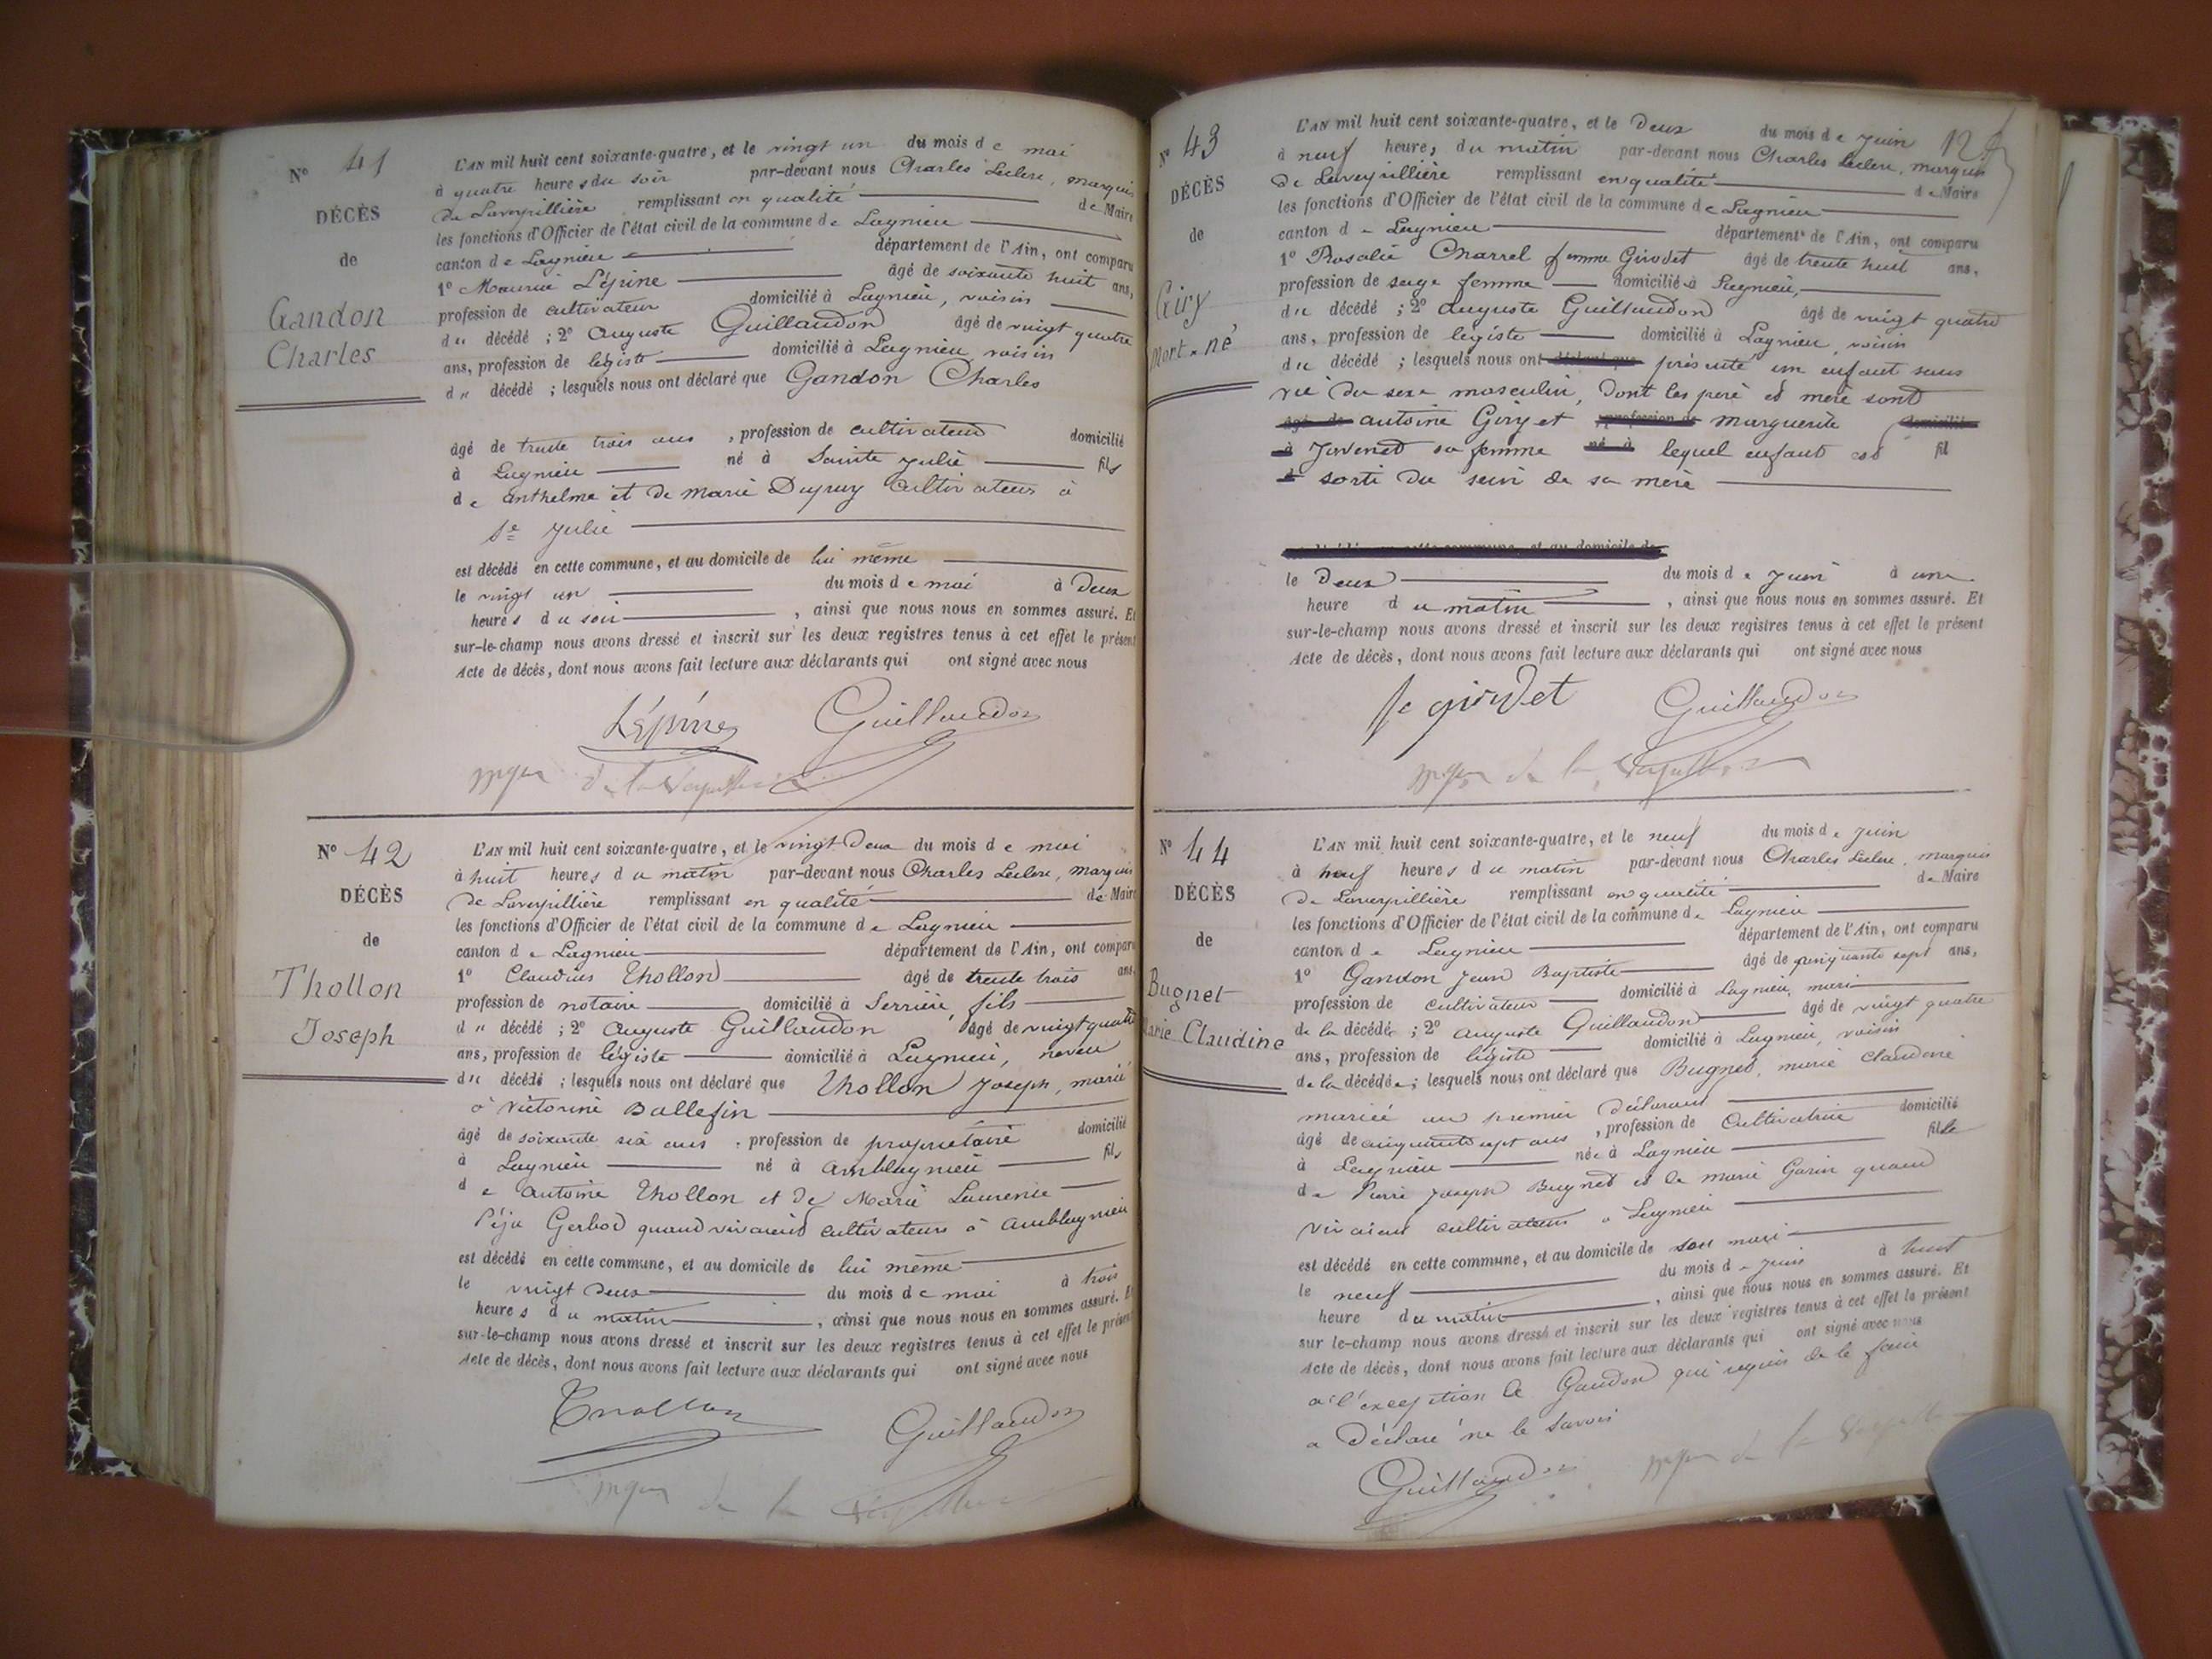 N° 41
DÉCÈS
de
Gandon
Charles
L'AN mil huit cent soixante-quatre, et le vingt un du mois de mai
à quatre heures du soir par-devant nous Charles Leclerc, marquis
De Laverpillière remplissant en qualité de Maire
les fonctions d'Officier de l'état civil de la commune de Lagnieu
canton de Lagnieu département de l'Ain, ont comparu
1° Maurice Lépine âgé de soixante huit ans,
profession de cultivateur domicilié à Lagnieu, voisin
du décédé ; 2° Auguste Guillaudon âgé de vingt quatre
ans, profession de légiste domicilié à Lagnieu voisin
du décédé ; lesquels nous ont déclaré que Gandon Charles
âgé de trente trois ans , profession de cultivateur domicilié
à Lagnieu né à Sainte Julie fils
de anthelme et de marie Dupuy cultivateurs à
Ste Julie
est décédé en cette commune, et au domicile de lui même
le vingt un du mois de mai à Deux
heures du soir , ainsi que nous nous en sommes assuré. Et
sur-le-champ nous avons dressé et inscrit sur les deux registres tenus à cet effet le présent
Acte de décès, dont nous avons fait lecture aux déclarants qui ont signé avec nous
Lépine Guillaudon
de la Verpillière
N° 42
DÉCÈS
de
Thollon
Joseph
L'AN mil huit cent soixante-quatre, et le vingt Deux du mois de mai
à huit heures du matin par-devant nous Charles Leclerc, marquis
De Laverpillière remplissant en qualité de Maire
les fonctions d'Officier de l'état civil de la commune de Lagnieu
canton de Lagnieu département de l'Ain, ont comparu
1° Claudius Thollon âgé de trente trois ans,
profession de notaire domicilié à Serrière, fils
du décédé ; 2° Auguste Guillaudon âgé de vingt quatre
ans, profession de légiste domicilié à Lagnieu, neveu
du décédé ; lesquels nous ont déclaré que Thollon Joseph, marié
à Victorine Ballefin
âgé de soixante six ans , profession de propriétaire domicilié
à Lagnieu né à Amblagnieu fils
de Antoine Thollon et de Marie Laurence
Péju Gerbod quand vivaient cultivateurs à Amblagnieu
est décédé en cette commune, et au domicile de lui même
le vingt Deux du mois de mai à trois
heures du matin , ainsi que nous nous en sommes assuré. Et
sur-le-champ nous avons dressé et inscrit sur les deux registres tenus à cet effet le présent
Acte de décès, dont nous avons fait lecture aux déclarants qui ont signé avec nous
Thollon Guillaudon
de la Verpillière
N° 43
DÉCÈS
de
Giry
Mort-né
L'AN mil huit cent soixante-quatre, et le Deux du mois de Juin
à neuf heures du matin par-devant nous Charles Leclerc, marquis
De Laverpillière remplissant en qualité de Maire
les fonctions d'Officier de l'état civil de la commune de Lagnieu
canton de Lagnieu département de l'Ain, ont comparu
1° Rosalie Charrel femme Girodet âgé de trente huit ans,
profession de sage femme domicilié à Lagnieu,
du décédé ; 2° Auguste Guillaudon âgé de vingt quatre
ans, profession de légiste domicilié à Lagnieu, voisin
du décédé ; lesquels nous ont déclaré que présenté un enfant sans
vie du sexe masculin, Dont les père et mère sont
âgé de antoine Giry et profession de marguerite domicilié
à Juvenet sa femme né à lequel enfant est fil
d sorti du sein de sa mère
le Deux du mois de Juin à une
heure du matin , ainsi que nous nous en sommes assuré. Et
sur-le-champ nous avons dressé et inscrit sur les deux registres tenus à cet effet le présent
Acte de décès, dont nous avons fait lecture aux déclarants qui ont signé avec nous
fe girodet Guillaudon
de la Verpillière
N° 44
DÉCÈS
de
Bugnet
Marie Claudine
L'AN mil huit cent soixante-quatre, et le neuf du mois de Juin
à neuf heures du matin par-devant nous Charles Leclerc, marquis
De Laverpillière remplissant en qualité de Maire
les fonctions d'Officier de l'état civil de la commune de Lagnieu
canton de Lagnieu département de l'Ain, ont comparu
1° Gandon Jean Baptiste âgé de cinquante sept ans,
profession de cultivateur domicilié à Lagnieu, mari
de la décédée ; 2° Auguste Guillaudon âgé de vingt quatre
ans, profession de légiste domicilié à Lagnieu, voisin
de la décédée ; lesquels nous ont déclaré que Bugnet, marie Claudine
mariée au premier Déclarant
âgé de cinquante sept ans , profession de Cultivatrice domicilié
à Lagnieu née à Lagnieu fille
de Pierre Joseph Bugnet et de marie Garin quand
vivaient cultivateurs à Lagnieu
est décédé en cette commune, et au domicile de son mari
le neuf du mois de Juin à huit
heure du matin , ainsi que nous nous en sommes assuré. Et
sur le-champ nous avons dressé et inscrit sur les deux registres tenus à cet effet le présent
Acte de décès, dont nous avons fait lecture aux déclarants qui ont signé avec nous
à l'exception de Gandon qui requis de le faire
a Déclaré ne le savoir
Guillaudon